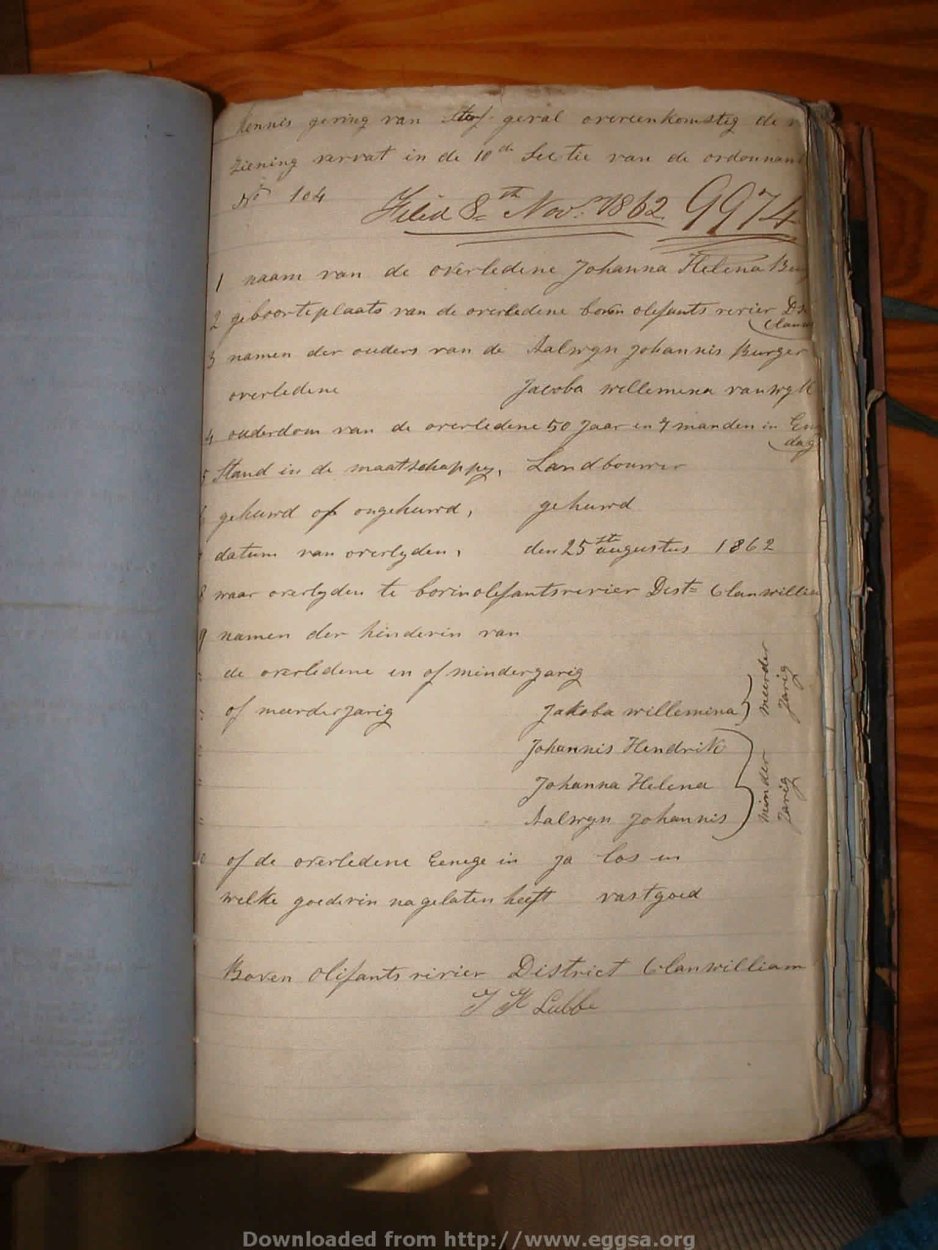 Kennis geving van Sterf geval overeenkomstig de
Ziening vervat in de 10de Sectie van de ordonnan
No 104
Filed 8th Novr 1862 9974
1 naam van de overledene Johanna Helena Bur
2 geboorteplaats van de overledene boven olefants revier Dst
Clanw
3 namen der ouders van de Aalwyn Johannis Burger
overledene Jacoba willemina van wyk
4 ouderdom van de overledene 50 Jaar en 7 manden in Een
dag
5 Stand in de maatschappy, Landbouwer
6 gehuwd of ongehuwd, gehuwd
7 datum van overlyden, den 25tt augustus 1862
8 waar overlyden te bovinolefantsrevier Dist= Clanwillia
9 namen der kinderin van
de overledene en of minderjarig
of meerderjarig Jakoba willemina meerder
jarig
Johannis Hendrik
Johanna Helena minder
jarig
Aalwyn Johannis
10 of de overledene Eenege in ja los en
welke goederin nagelaten heeft vastgoed
Boven Olifants rivier District Clanwilliam
J H Lubbe
Downloaded from http://www.eggsa.org